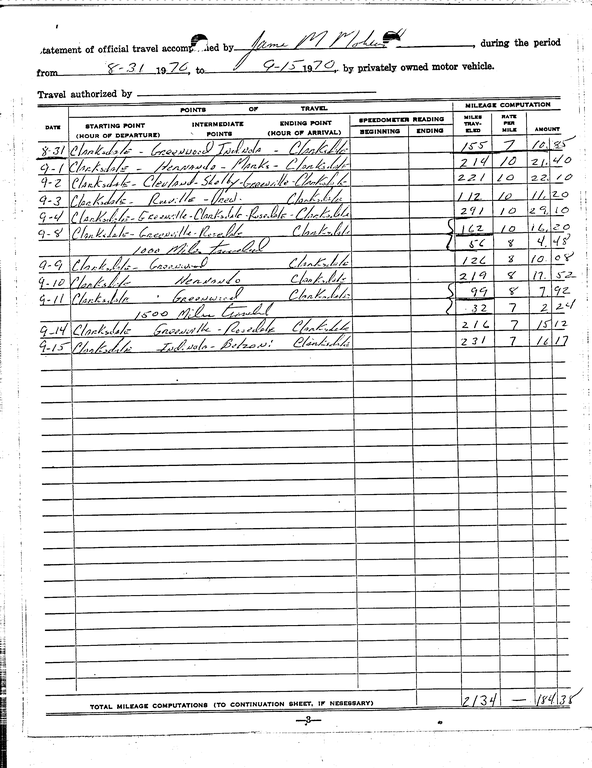 .tatement of official travel accomp ied by James M Mohead, during the period
from 8-31 1970, to 9-15 1970, by privately owned motor vehicle.
Travel authorized by
DATE POINTS OF TRAVEL SPEEDOMETER READING MILEAGE COMPUTATION
STARTING POINT (HOUR OF DEPARTURE) INTERMEDIATE POINTS ENDING POINT (HOUR OF ARRIVAL) BEGINNING ENDING MILES TRAV-ELED RATE PER MILE AMOUNT
8-31 Clarksdale - Greenwood Indinola - Clarksdale 155 7 10.85
9-1 Clarksdale - Hernando - Marks - Clarksdale 214 10 21.40
9-2 Clarksdale - Cleveland - Shelby - Greenville - Clarksdale 221 10 22.10
9-3 Clarksdale - Ruville - Drew - Clarksdale 112 10 11.20
9-4 Clarksdale - Greenville - Clarksdale - Rosedale - Clarksdale 291 10 29.10
9-8 Clarksdale - Greenville - Rosedale Clarksdale 162 10 16.20
1000 Miles Traveled 56 8 4.48
9-9 Clarksdale - Greenwood Clarksdale 126 8 10.08
9-10 Clarksdale Hernando Clarksdale 219 8 17.52
9-11 Clarksdale Greenwood Clarksdale 99 8 7.92
1500 Miles Traveled 32 7 2.24
9-14 Clarksdale Greenville - Rosedale Clarksdale 216 7 15.12
9-15 Clarksdale Indinola - Belzoni Clarksdale 231 7 16.17
TOTAL MILEAGE COMPUTATIONS (TO CONTINUATION SHEET, IF NESESSARY) 2134 — 184.38
—3—